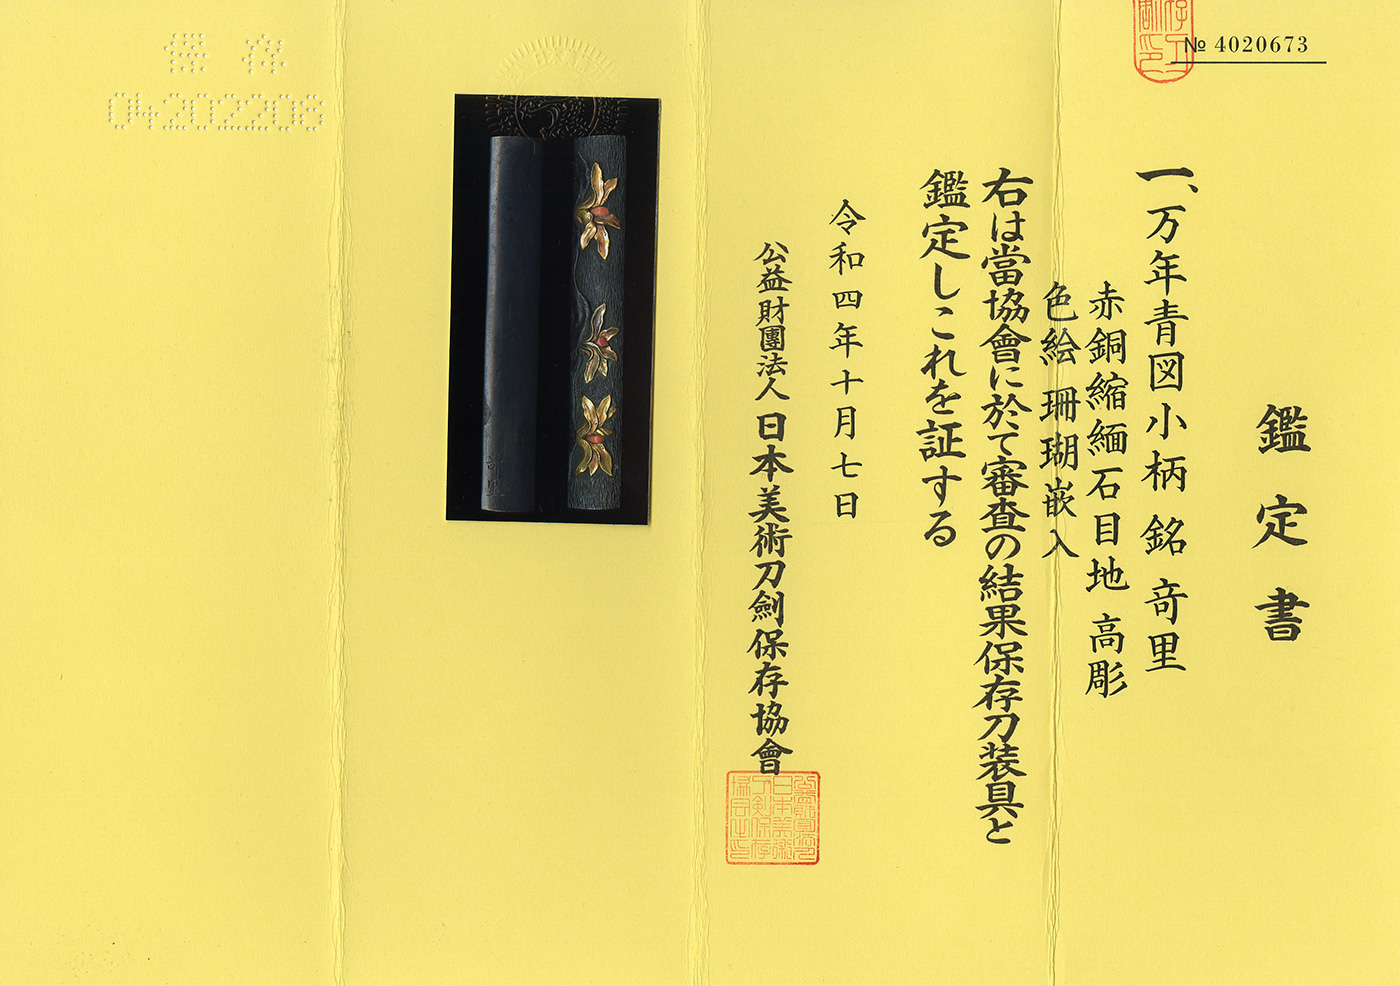 № 4020673
鑑定書
一、万年青図小柄 銘 竒里
赤銅縮緬石目地 高彫
色絵 珊瑚嵌入
右は當協會に於て審査の結果保存刀装具と
鑑定しこれを証する
令和四年十月七日
公益財團法人 日本美術刀劍保存協會
保存
04202208